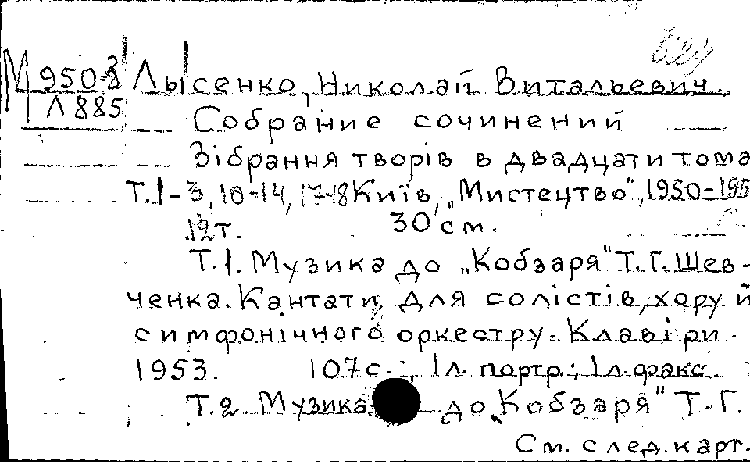 М 950 Лысенко, Николай Витальевич.
Л885
Собрание сочинений
Зібрання творів в двадцати тома
Т.1-3, 10-14, 17-18 Київ, „Мистецтво", 1950-195
т. 30 см.
Т.1. Музика до „Кобзаря" Т.Г. Шев-
ченка. Кантати для солістів, хору й
симфонічного оркестру. Клавіри.
1953. 107 с.; 1 л. портр.; 1 л. факс.
Т.2 Музика до „Кобзаря" Т.Г.
См. след. карт.